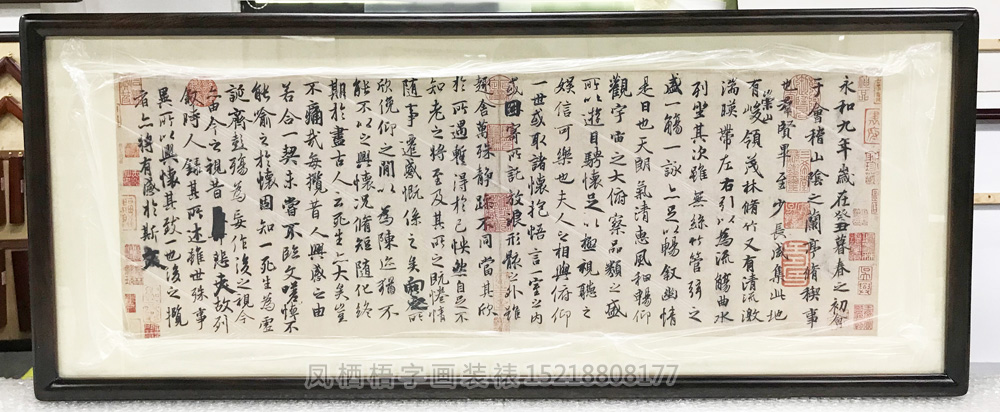 永和九年歲在癸丑暮春之初會
于會稽山陰之蘭亭脩稧事
也羣賢畢至少長咸集此地
有崇山峻領茂林脩竹又有清流激
湍暎帶左右引以為流觴曲水
列坐其次雖無絲竹管弦之
盛一觴一詠亦足以暢叙幽情
是日也天朗氣清惠風和暢仰
觀宇宙之大俯察品類之盛
所以遊目騁懷足以極視聽之
娛信可樂也夫人之相與俯仰
一世或取諸懷抱悟言一室之內
或因寄所託放浪形骸之外雖
趣舍萬殊靜躁不同當其欣
於所遇暫得於己怏然自足不
知老之將至及其所之既惓情
隨事遷感慨係之矣向之所
欣俛仰之間以為陳迹猶不
能不以之興懷況脩短隨化終
期於盡古人云死生亦大矣豈
不痛哉每攬昔人興感之由
若合一契未嘗不臨文嗟悼不
能喻之於懷固知一死生為虛
誕齊彭殤為妄作後之視今
亦由今之視昔悲夫故列
敘時人錄其所述雖世殊事
異所以興懷其致一也後之攬
者亦將有感於斯文
凤栖梧字画装裱15218808177